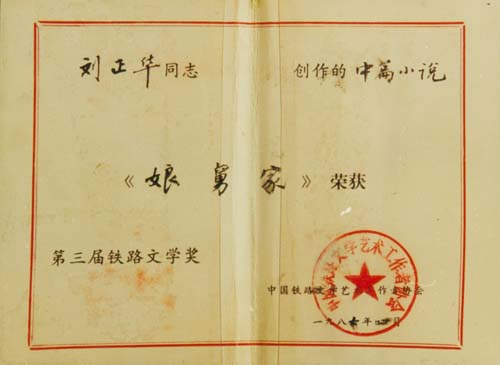 刘正华同志 创作的中篇小说
《娘舅家》荣获
第三届铁路文学奖
中国铁路文学艺术工作者协会
中国铁路文学艺术工作者协会
一九八 年 月